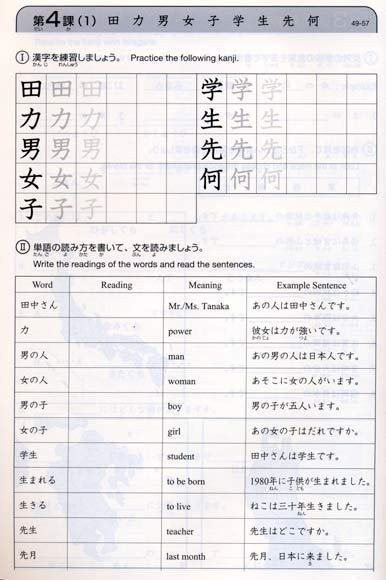 第4課(1) 田 力 男 女 子 学 生 先 何 49-57
だい か
Ⅰ 漢字を練習しましょう。 Practice the following kanji.
かんじ れんしゅう
田 田 田 学 学 学
力 力 力 生 生 生
男 男 男 先 先 先
女 女 女 何 何 何
子 子 子
Ⅱ 単語の読み方を書いて、文を読みましょう。
たんご よ かた か ぶん よ
Write the readings of the words and read the sentences.
Word Reading Meaning Example Sentence
田中さん Mr./Ms. Tanaka あの人は田中さんです。
力 power 彼女は力が強いです。
かのじょ つよ
男の人 man あの男の人は日本人です。
女の人 woman あそこに女の人がいます。
男の子 boy 男の子が五人います。
女の子 girl あの女の子はだれですか。
学生 student 田中さんは学生です。
生まれる to be born 1980年に子供が生まれました。
ねん こ ども
生きる to live ねこは三十年生きました。
ねん
先生 teacher 先生はどこですか。
先月 last month 先月、日本に来ました。
き